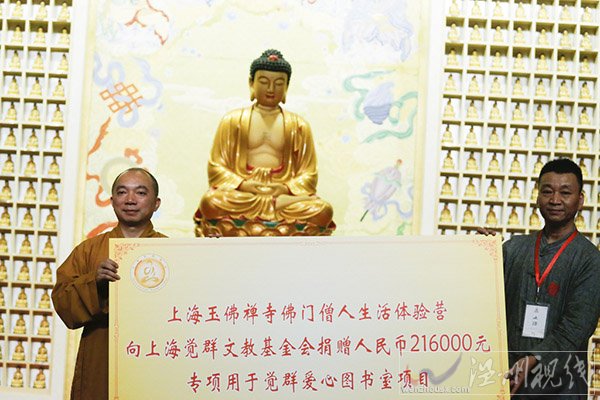 上海玉佛禅寺佛门僧人生活体验营
向上海觉群文教基金会捐赠人民币216000元
专项用于觉群爱心图书室项目